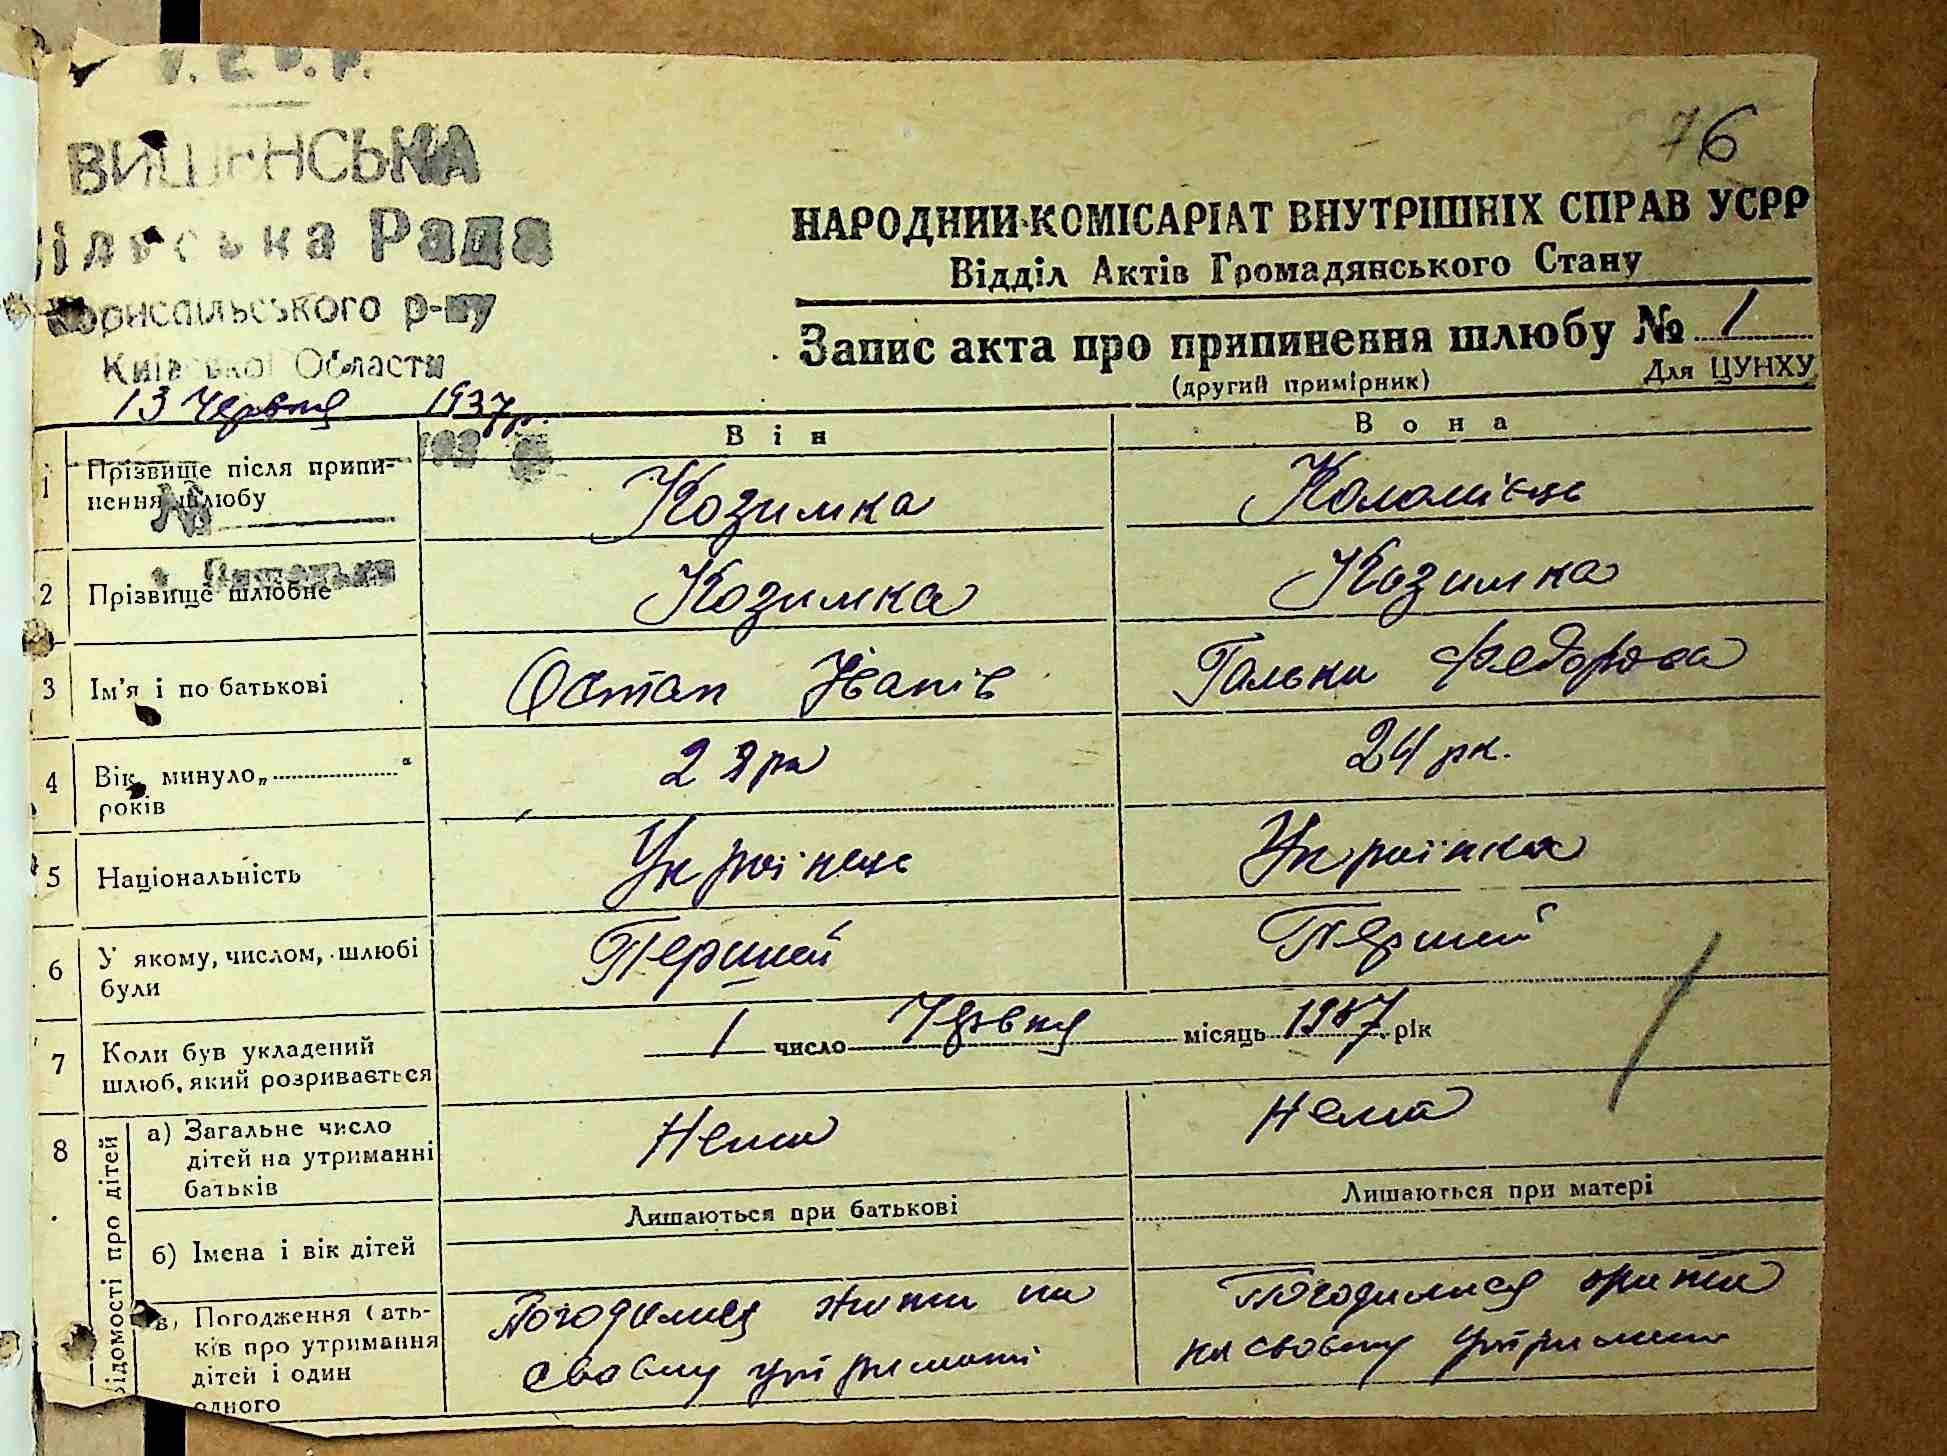 У.С.Р.Р.
ВИШЕНСЬКА
Сільська Рада
Бориспільського р-ну
Київської Области
13 Червня 1937 р.
193
№
с. Вишеньки
76
НАРОДНИЙ КОМІСАРІАТ ВНУТРІШНІХ СПРАВ УСРР
Відділ Актів Громадянського Стану
Запис акта про припинення шлюбу № 1
(другий примірник)
Для ЦУНХУ
Він
Вона
1 Прізвище після припи-
нення шлюбу
Козимка
Коломієць
2 Прізвище шлюбне
Козимка
Козимка
3 Ім'я і по батькові
Остап Іванів
Гальки Федорова
4 Вік, минуло „ “
років
24 рк.
5 Національність
Українець
Українка
6 У якому, числом, шлюбі
були
Перший
Перший
7 Коли був укладений
шлюб, який розривається
1 число Червня місяць рік
8 Відомості про дітей
а) Загальне число
дітей на утриманні
батьків
Нема
Нема
б) Імена і вік дітей
Лишаються при батькові
Лишаються при матері
в) Погодження бать-
ків про утримання
дітей і один
одного
Погодилися жити на
своєму утримані
Погодилися жити
на своєму утримані